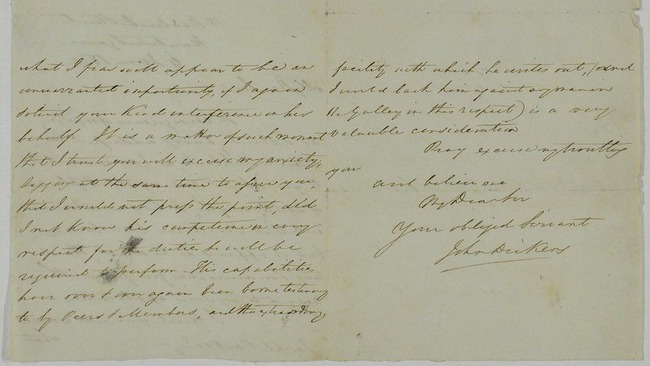 what I fear will appear to be an
unwarranted importunity, if I again
solicit your kind interference in his
behalf. It is a matter of such moment
that I trust you will excuse my anxiety,
begging at the same time to assure you,
that I would not press the point, did
I not know his competence in every
respect for the duties he will be
required to perform. His capabilities
have over & over again been borne testimony
to by Peers & Members, and the extraordinary
facility with which he writes out, (and
I would back him against any man in
the Gallery in this respect) is a very
valuable consideration
Pray excuse my troubling
you
and believe me
My Dear Sir
Your obliged Servant
John Dickens